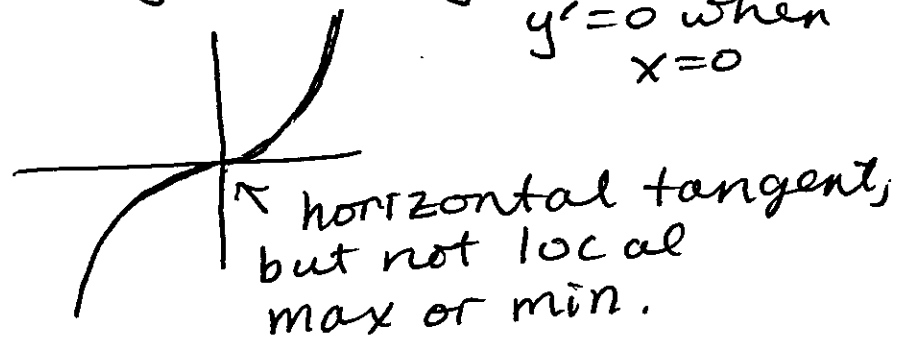 y'=0 when
x=0
horizontal tangent,
but not local
max or min.